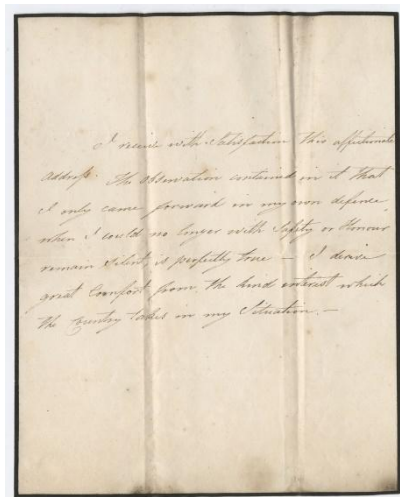 I receive with Satisfaction this affectionate
Address. The Observation contained in it that
I only came forward in my own defence
when I could no longer with Safety or Honour
remain Silent, is perfectly true — I derive
great Comfort from the kind interest which
the Country takes in my Situation. —